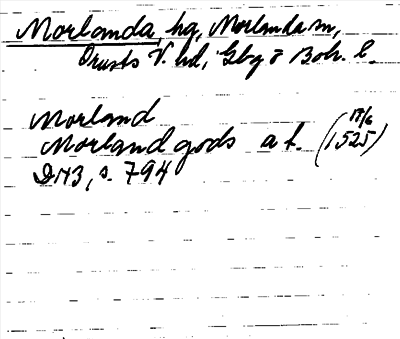 Morlanda, hg, Morlanda sn,
Orusts V. hd, Gbg o Boh. l.
Morland
Morland gods a f. (17/6 1525)
DN3, s. 794